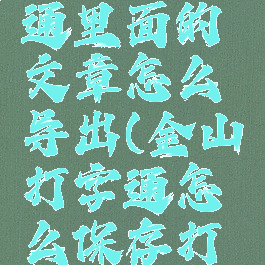 通里面的
文章怎么
导出(金山
打字通怎
么保存打